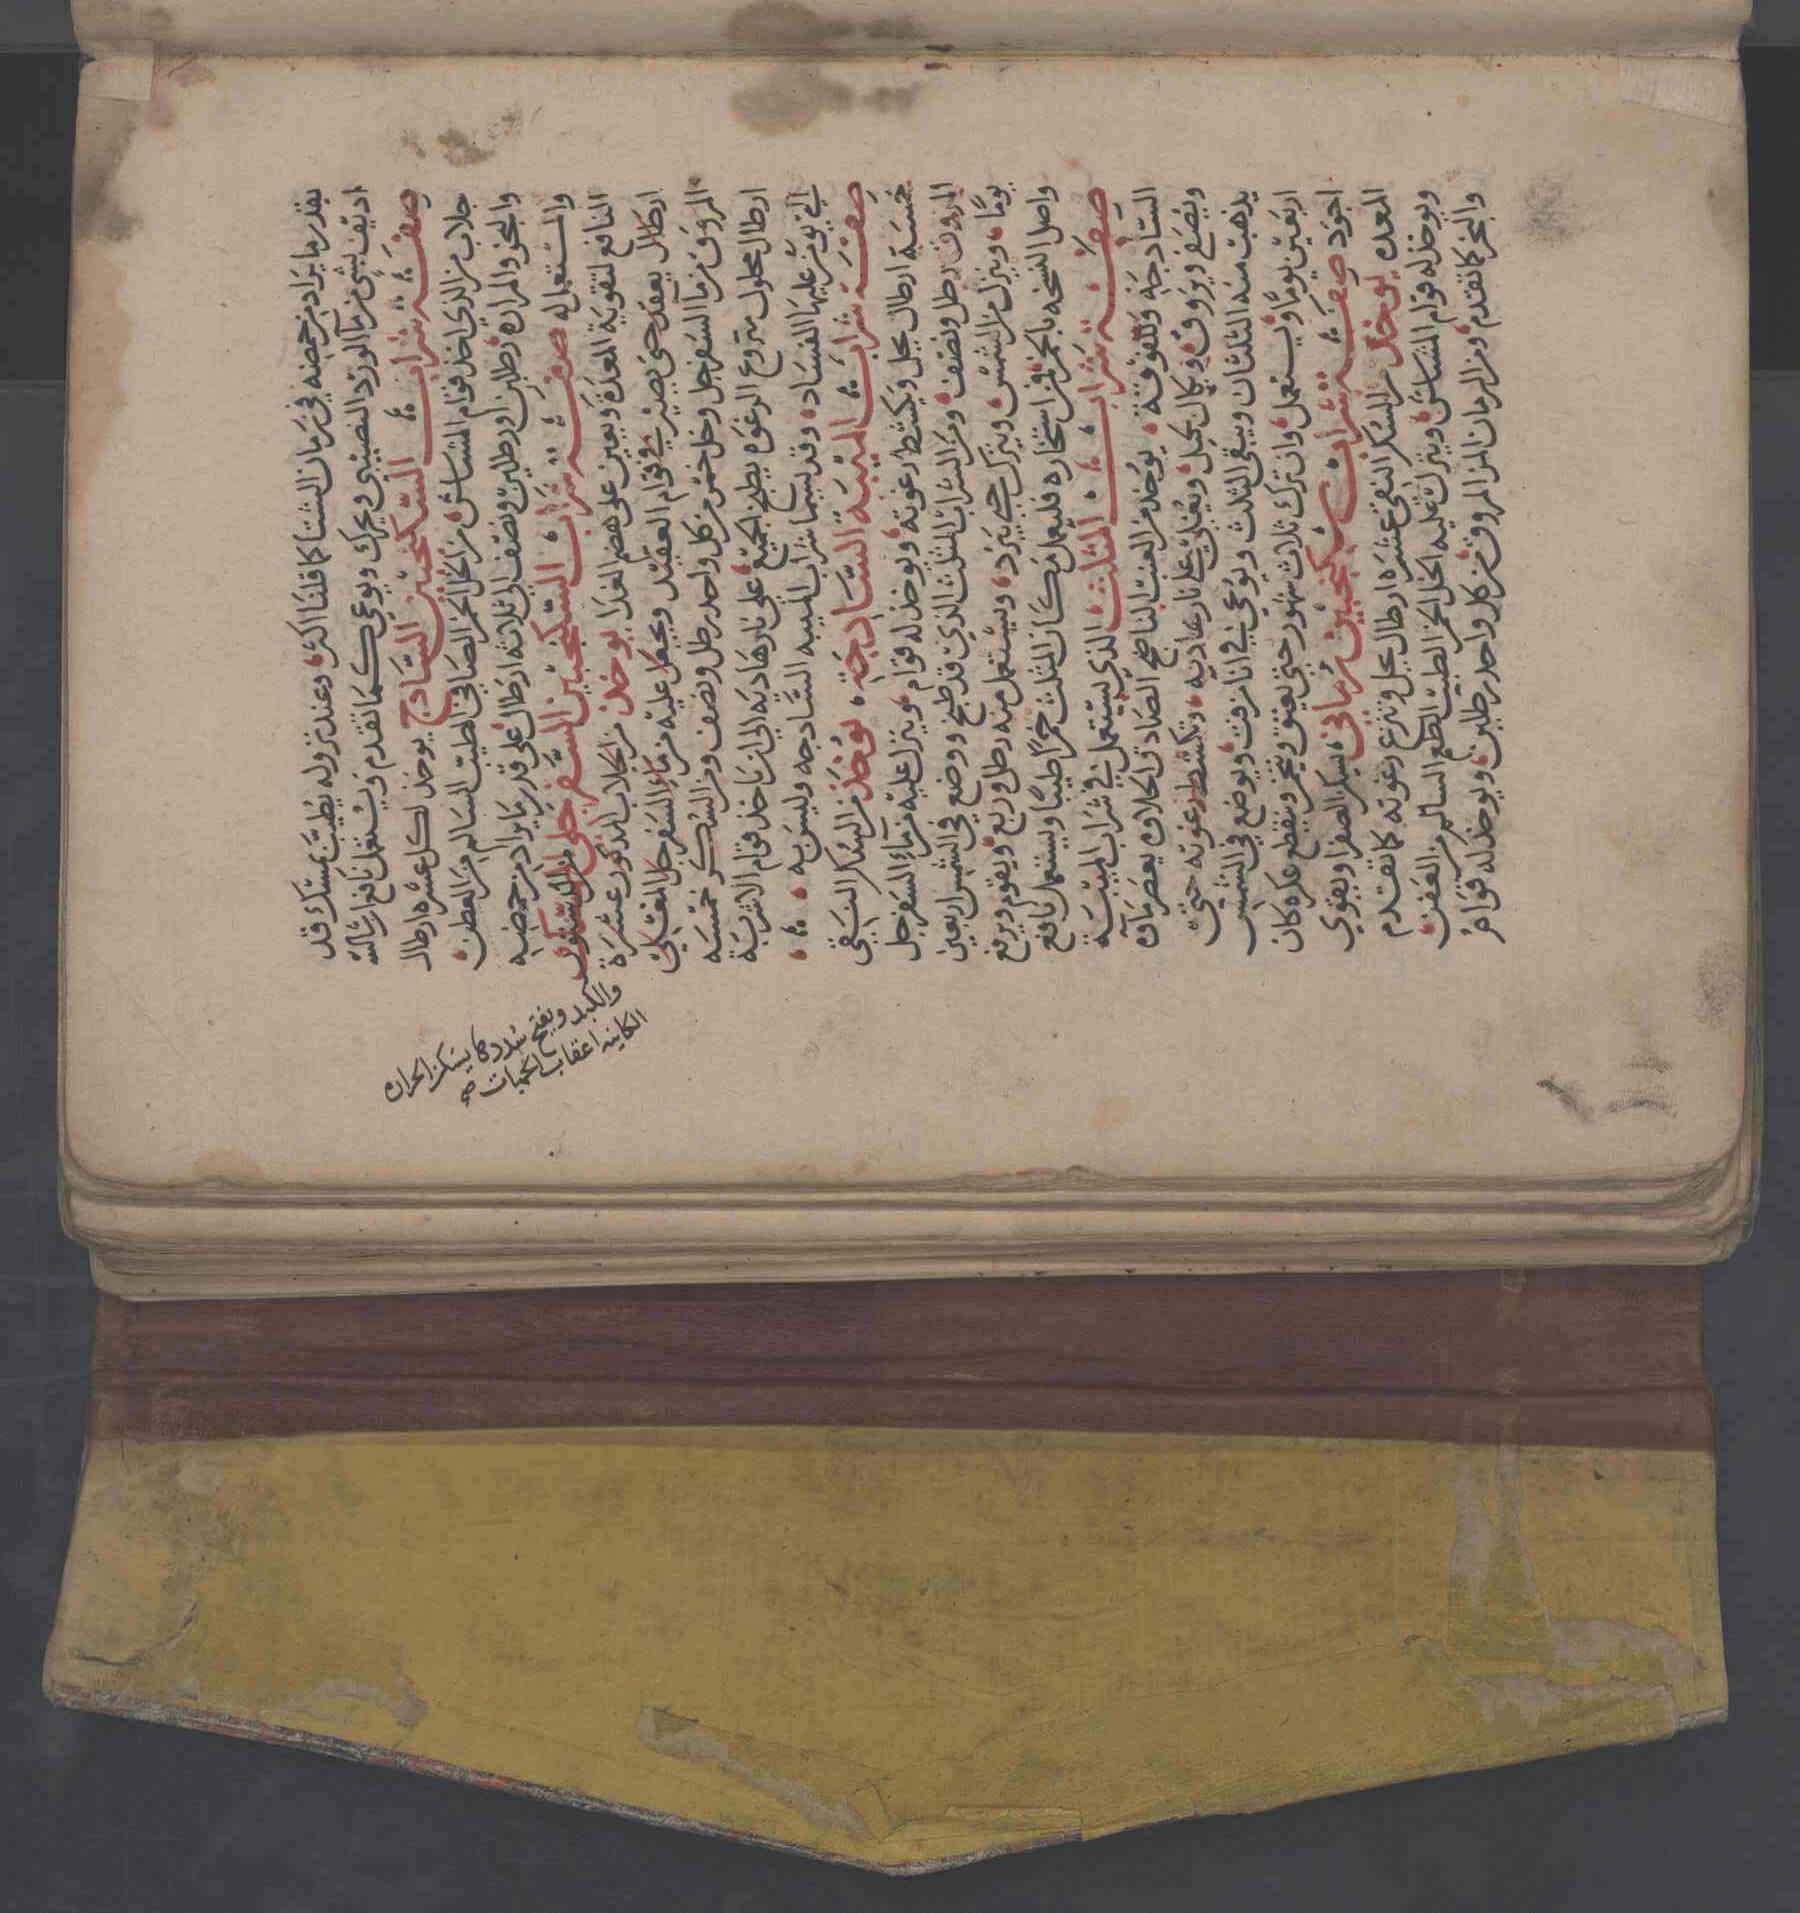 بقدر ما يراد من حمضه في زمان الشتا كما قلنا اكثر وعند نزوله يطيب بمسك قد
اديف بشي من ما الورد النصيبي ويحرك ويوعي كما تقدم ويستعمل نافع ان شا الله
صفة شراب السكنجبين السادج يوخذ لكل عشره ارطال
جلاب من الذي اخذ قوام المشاش من الخل الخمر الصافي الطيب السالم من العطن
والمراره رطلين او رطلين ونصف الي ثلاثه ارطال علي قدر ما يراد من حمضه
والمستعمل له صفة شراب السكنجبين السفرجلي
النافع لتقوية المعدة ويعين على هضم الغدا يوخذ من الجلاب المذكور عشرة
ارطال يعقد حتى يصير في قوام العقيد ويجعل عليه من ماء السفرجل المغلي
المروق من ما السفرجل وخل خمر من كل واحد رطل ونصف ومن السكر خمسه
ارطال محلول منزوع الرغوه يطبخ الجميع على نار هاديه الى ان ياخذ قوام الاشربة
التي يومن عليها الفساد وقد يسما شراب الميبه السادجه وليس به
صفة شراب الميبة السادجة يوخذ من السكر النقي
خمسة ارطال يحل ويكشط رغوته ويوخذ له قوام وينزل عليه من ماء السفرجل
المروق رطل ونصف ومن الشراب المثلث الذي قد طبخ ووضع في الشمس اربعين
يوما وينزل من الشمس ويترك حتي يبرد ويستعمل منه رطل وربع ويقوم ويرفع
واصل النسخه بالخمر فمن استخاره فليعمل مكان المثلث خمرا طيبا ويستعمل نافع
صفة شراب المثلث الذي يستعمل في شراب الميبة
السادجه وللفوقه يوخذ من العنب الناضج الصادق الحلاوه يعصر ماوه
ويصفي ويروق ويكال بكيل ويغلي علي نار هاديه وتكشط رغوته حتى
يذهب منه الثلثان ويبقى الثلث ويوعي في انا مزفت ويوضع في الشمس
اربعين يوما ويستعمل وان ترك ثلاث شهور حتي يعتق ويتخمر وينقطع عكره كان
اجود صفة شراب سكنجبين رماني يسكن الصفرا ويقوي
المعده يوخذ من السكر النقي عشره ارطال يحل وينزع رغوته كما تقدم
ويوخذ له قوام المشاش وينزل عليه الخل الخمر الطيب الطعم السالم من العفن
والبخر كما تقدم ومن الرمان المز المروق من كل واحد رطلين ويوخذ له قوام
والكبد ويفتح سددها يسكن الحراره
الكاينه اعقاب الحميات